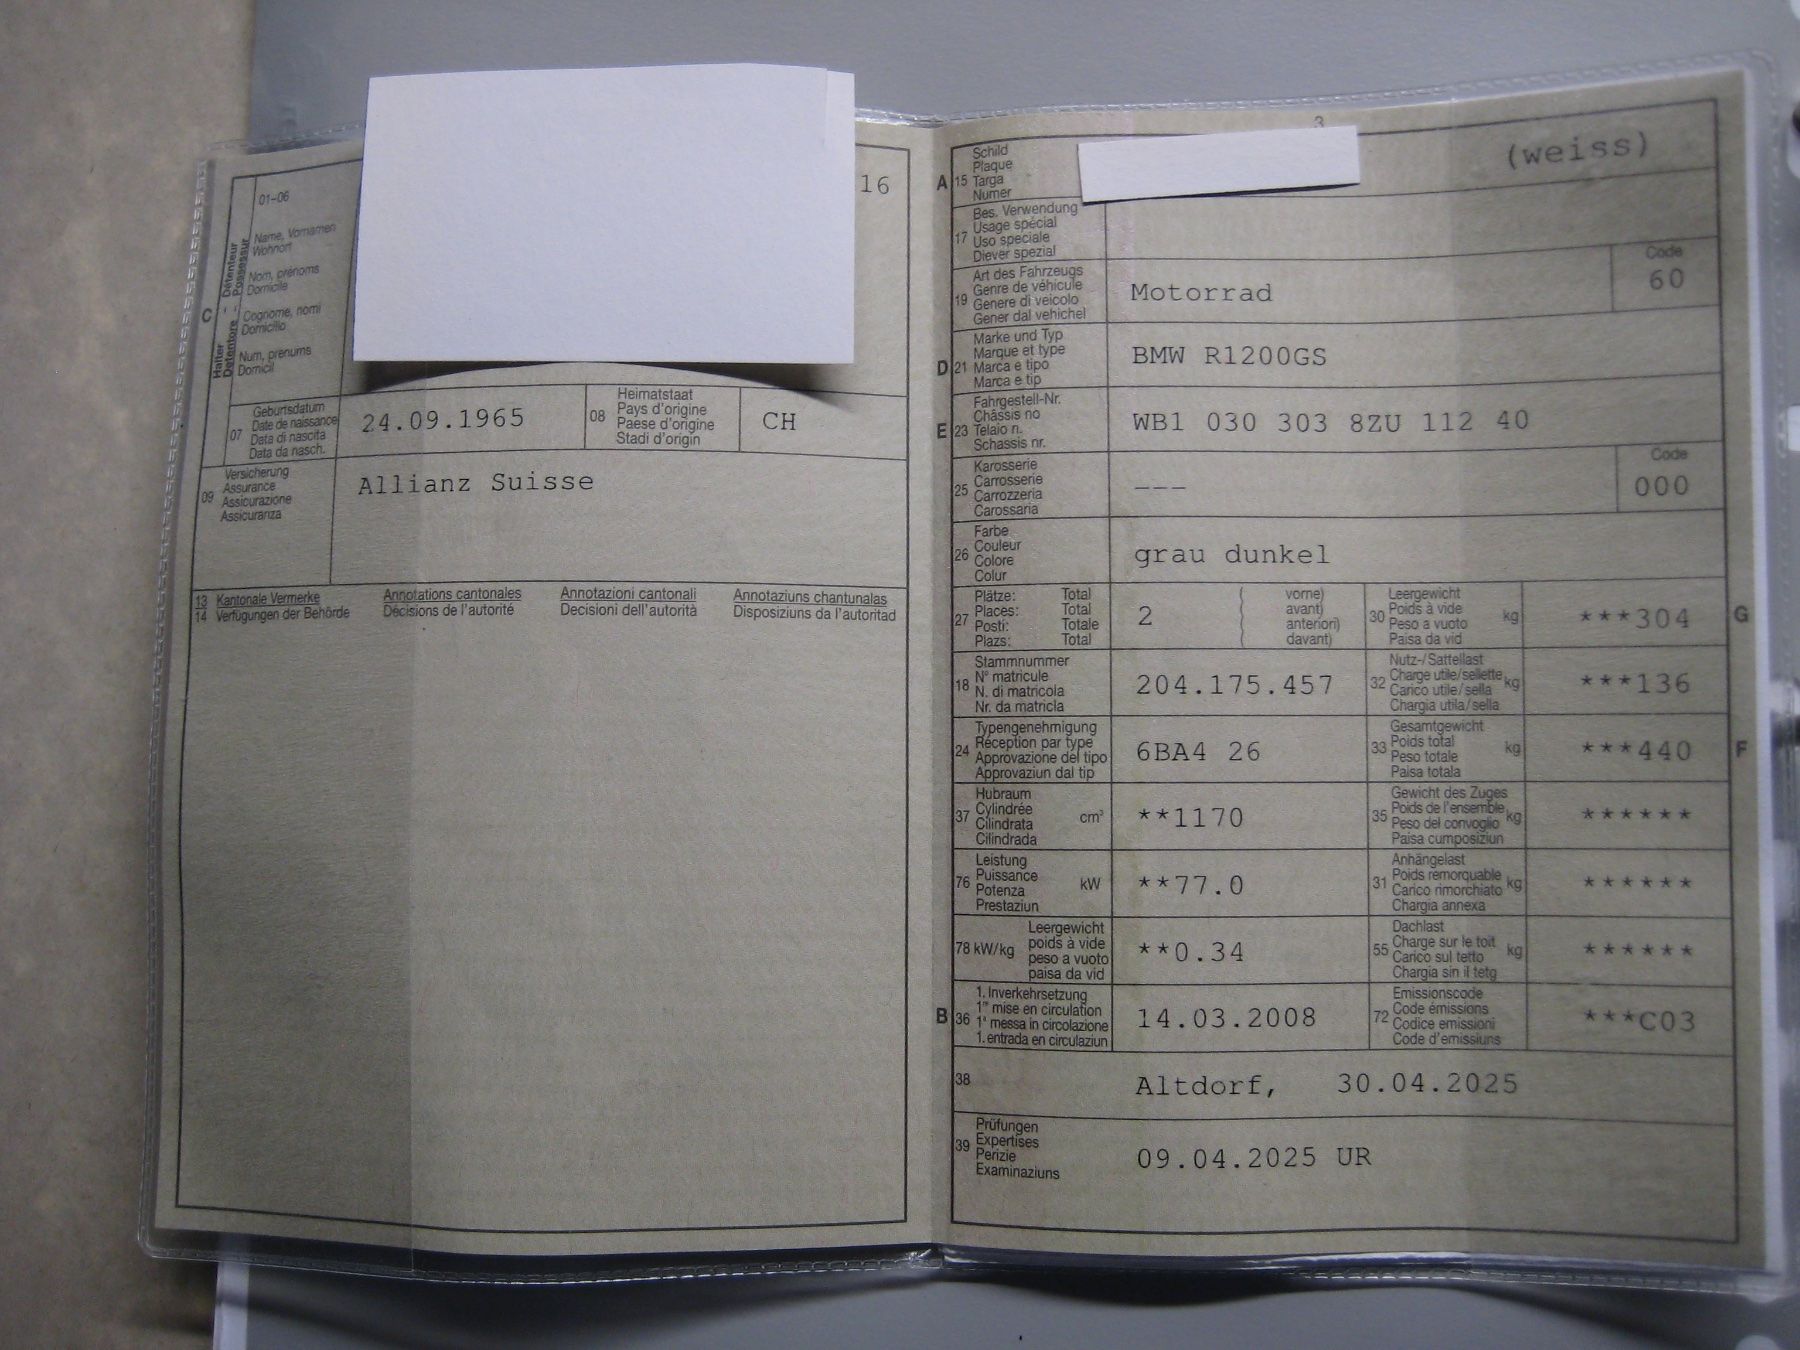 16
01–06
Name, Vornamen
Wohnort
Nom, prénoms
Domicile
Cognome, nomi
Domicilio
Num, prenums
Domicil
C
Halter - Détenteur
Detentore - Possessur
07
Geburtsdatum
Date de naissance
Data di nascita
Data da nasch.
24.09.1965
08
Heimatstaat
Pays d'origine
Paese d'origine
Stadi d'origin
CH
09
Versicherung
Assurance
Assicurazione
Assicuranza
Allianz Suisse
13 Kantonale Vermerke Annotations cantonales Annotazioni cantonali Annotaziuns chantunalas
14 Verfügungen der Behörde Décisions de l'autorité Decisioni dell'autorità Disposiziuns da l'autoritad
3
A 15
Schild
Plaque
Targa
Numer
(weiss)
17
Bes. Verwendung
Usage spécial
Uso speciale
Diever spezial
19
Art des Fahrzeugs
Genre de véhicule
Genere di veicolo
Gener dal vehichel
Motorrad
Code
60
D 21
Marke und Typ
Marque et type
Marca e tipo
Marca e tip
BMW R1200GS
E 23
Fahrgestell-Nr.
Châssis no
Telaio n.
Schassis nr.
WB1 030 303 8ZU 112 40
25
Karosserie
Carrosserie
Carrozzeria
Carossaria
---
Code
000
26
Farbe
Couleur
Colore
Colur
grau dunkel
27
Plätze: Total
Places: Total
Posti: Totale
Plazs: Total
2
( vorne)
( avant)
( anteriori)
( davant)
30
Leergewicht
Poids à vide
Peso a vuoto
Paisa da vid
kg
***304
G
18
Stammnummer
N° matricule
N. di matricola
Nr. da matricla
204.175.457
32
Nutz-/Sattellast
Charge utile/sellette
Carico utile/sella
Chargia utila/sella
kg
***136
24
Typengenehmigung
Réception par type
Approvazione del tipo
Approvaziun dal tip
6BA4 26
33
Gesamtgewicht
Poids total
Peso totale
Paisa totala
kg
***440
F
37
Hubraum
Cylindrée
Cilindrata
Cilindrada
cm³
**1170
35
Gewicht des Zuges
Poids de l'ensemble
Peso del convoglio
Paisa cumposiziun
kg
******
76
Leistung
Puissance
Potenza
Prestaziun
kW
**77.0
31
Anhängelast
Poids remorquable
Carico rimorchiato
Chargia annexa
kg
******
78 kW/kg
Leergewicht
poids à vide
peso a vuoto
paisa da vid
**0.34
55
Dachlast
Charge sur le toit
Carico sul tetto
Chargia sin il tetg
kg
******
B 36
1. Inverkehrsetzung
1re mise en circulation
1a messa in circolazione
1. entrada en circulaziun
14.03.2008
72
Emissionscode
Code émissions
Codice emissioni
Code d'emissiuns
***C03
38
Altdorf, 30.04.2025
39
Prüfungen
Expertises
Perizie
Examinaziuns
09.04.2025 UR